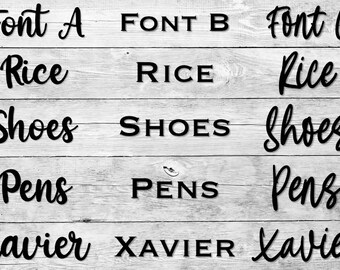 Font A FONT B Font C
Rice RICE Rice
Shoes SHOES Shoes
Pens PENS Pens
Xavier XAVIER Xavier